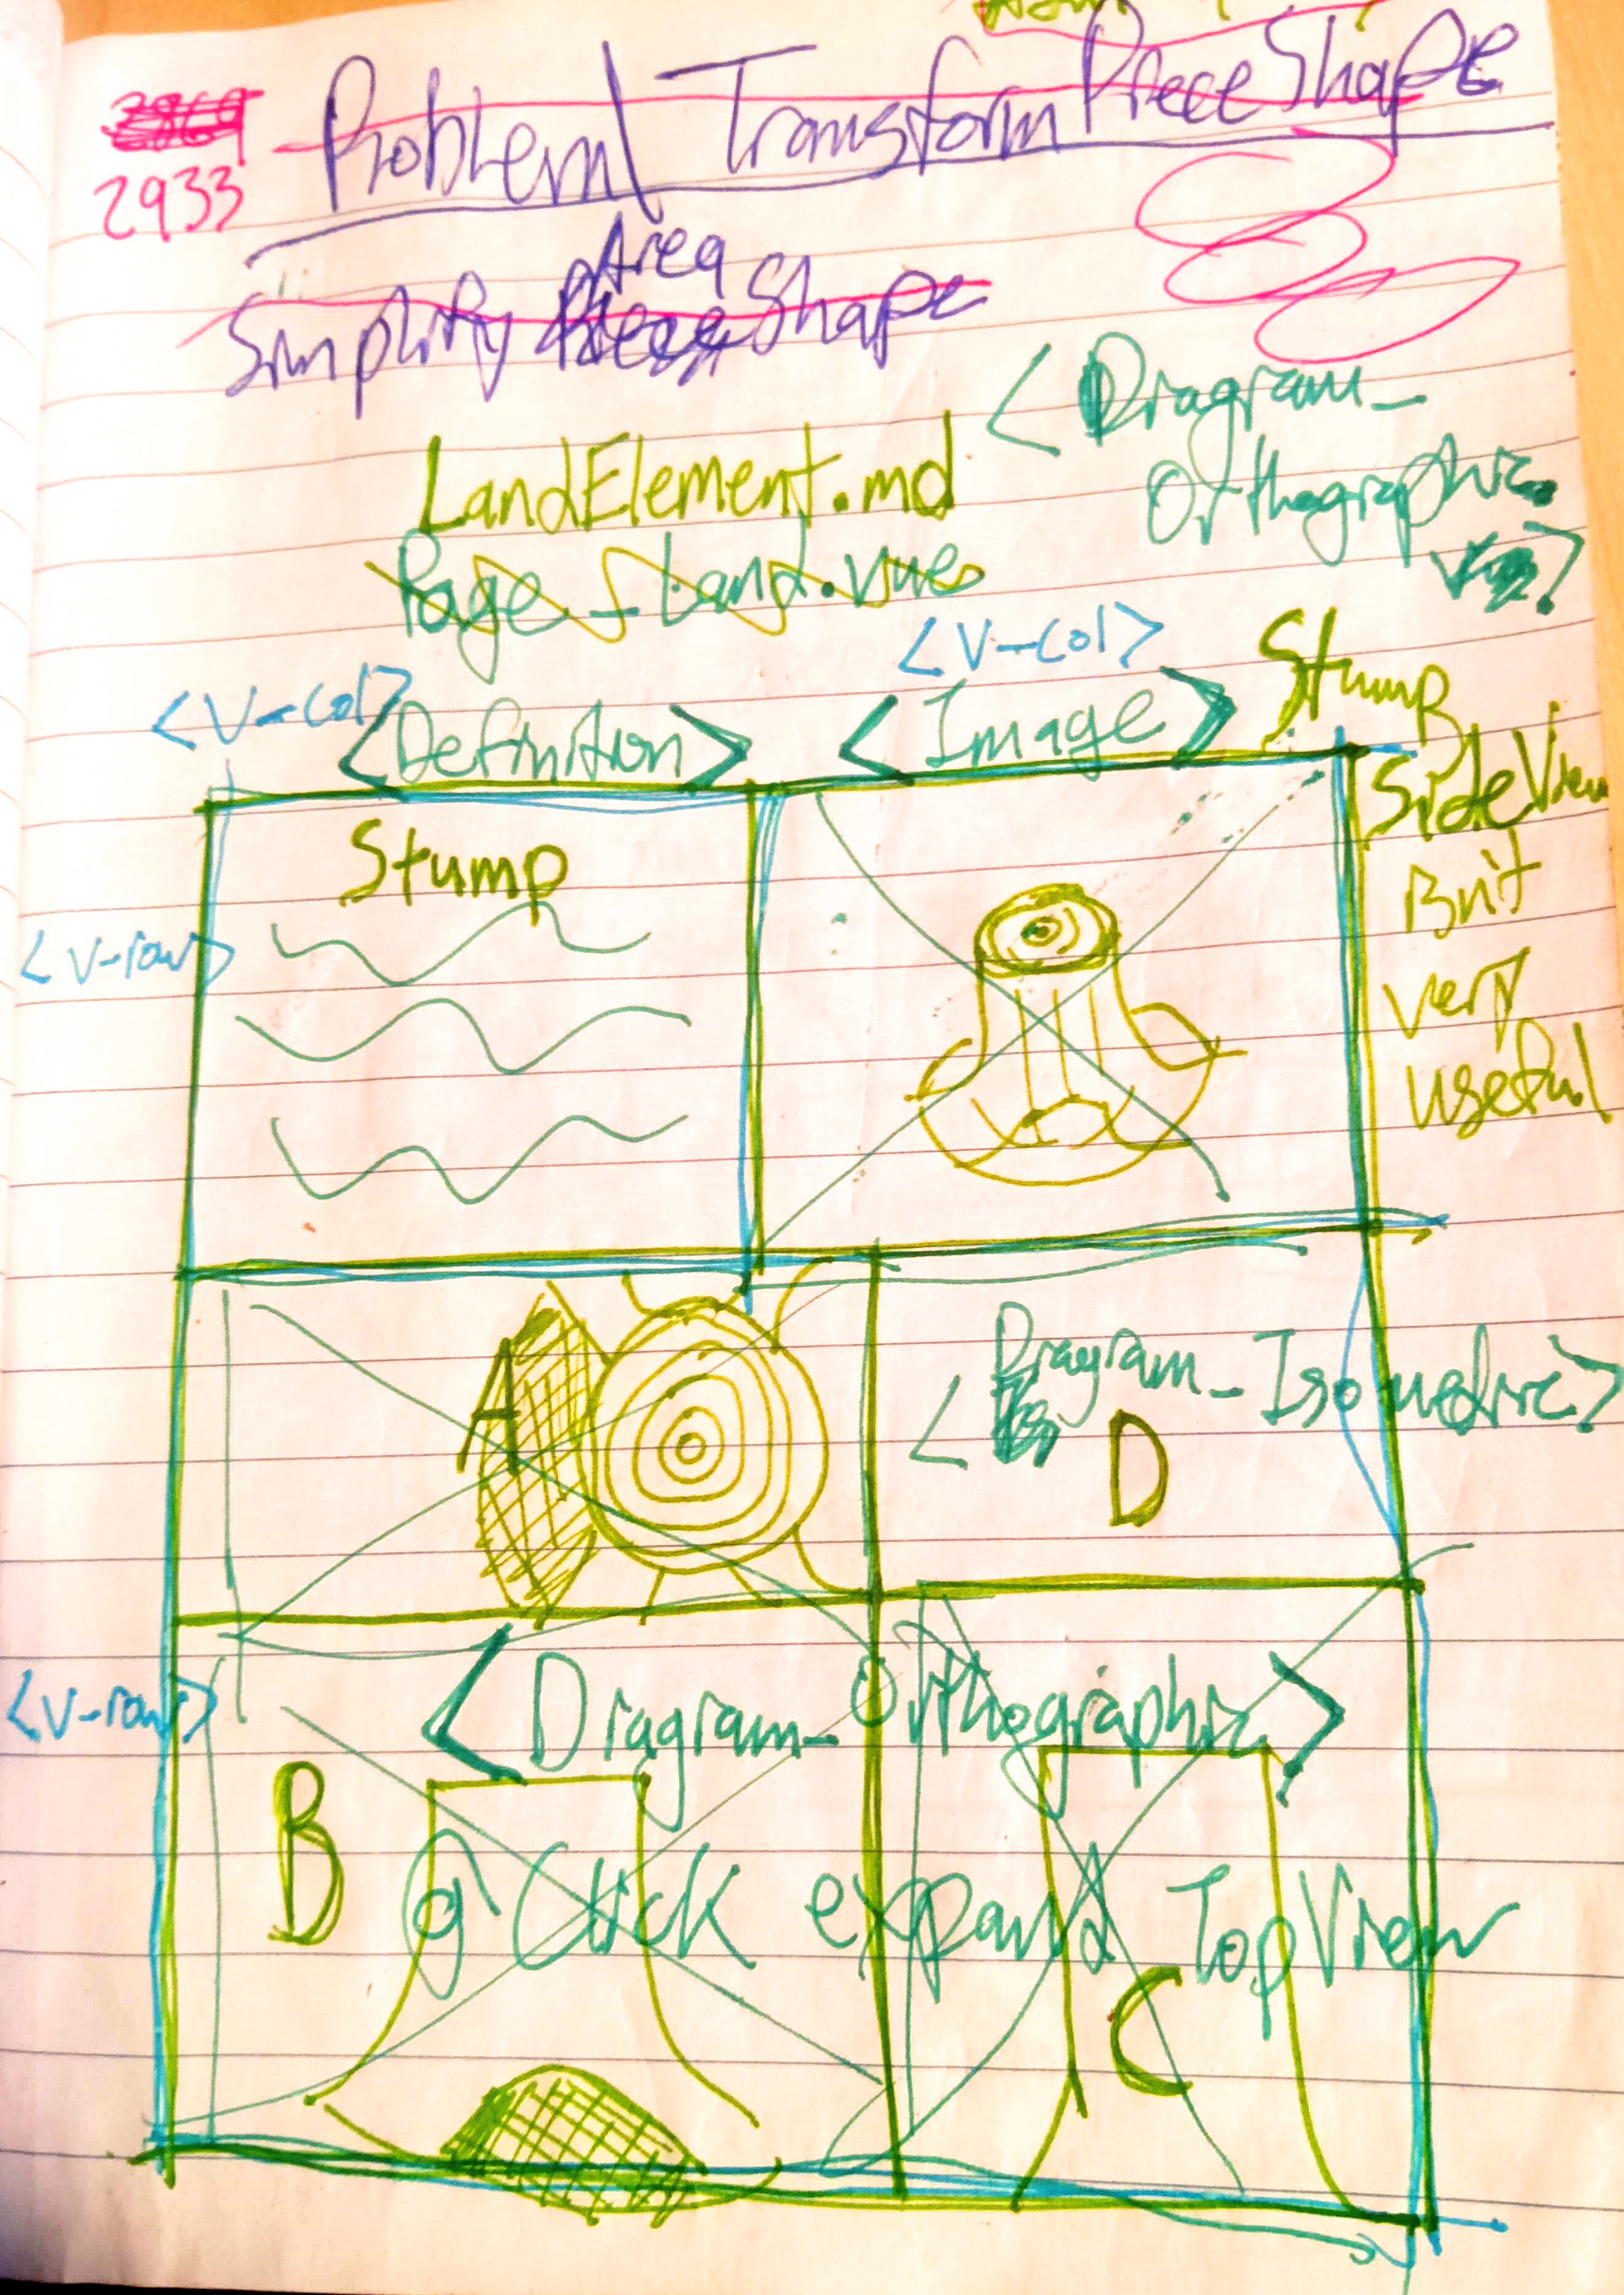 2933
Problem Transform Piece Shape
Area
Simplify Shape
<Diagram_
Orthographic.
LandElement.md
Page_Land.vue
<v-col>
<v-col>
<Definition>
<Image>
Stump
Side View
Stump
<v-row>
very
useful
A
<Diagram_Isometric>
D
<v-row>
<Diagram_Orthographic>
B
@Click expand TopView
C